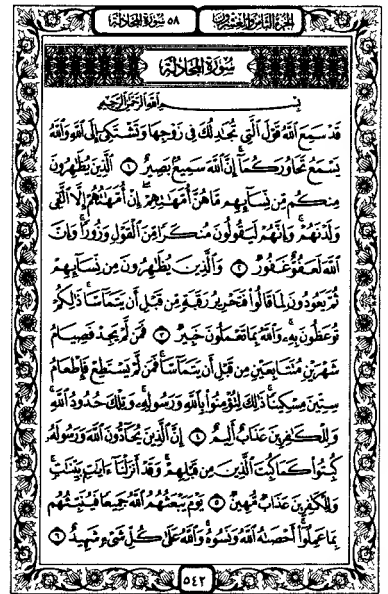 الجزء الثامن والعشرون ٥٨ سورة المجادلة
سُورَةُ المُجَادلة
بِسْمِ اللَّهِ الرَّحْمَٰنِ الرَّحِيمِ
قَدْ سَمِعَ ٱللَّهُ قَوْلَ ٱلَّتِى تُجَٰدِلُكَ فِى زَوْجِهَا وَتَشْتَكِىٓ إِلَى ٱللَّهِ وَٱللَّهُ
يَسْمَعُ تَحَاوُرَكُمَآ إِنَّ ٱللَّهَ سَمِيعٌۢ بَصِيرٌ ١ ٱلَّذِينَ يُظَٰهِرُونَ
مِنكُم مِّن نِّسَآئِهِم مَّا هُنَّ أُمَّهَٰتِهِمْ إِنْ أُمَّهَٰتُهُمْ إِلَّا ٱلَّٰٓـِٔى
وَلَدْنَهُمْ وَإِنَّهُمْ لَيَقُولُونَ مُنكَرًا مِّنَ ٱلْقَوْلِ وَزُورًا وَإِنَّ
ٱللَّهَ لَعَفُوٌّ غَفُورٌ ٢ وَٱلَّذِينَ يُظَٰهِرُونَ مِن نِّسَآئِهِمْ
ثُمَّ يَعُودُونَ لِمَا قَالُوا۟ فَتَحْرِيرُ رَقَبَةٍ مِّن قَبْلِ أَن يَتَمَآسَّا ذَٰلِكُمْ
تُوعَظُونَ بِهِۦ وَٱللَّهُ بِمَا تَعْمَلُونَ خَبِيرٌ ٣ فَمَن لَّمْ يَجِدْ فَصِيَامُ
شَهْرَيْنِ مُتَتَابِعَيْنِ مِن قَبْلِ أَن يَتَمَآسَّا فَمَن لَّمْ يَسْتَطِعْ فَإِطْعَامُ
سِتِّينَ مِسْكِينًا ذَٰلِكَ لِتُؤْمِنُوا۟ بِٱللَّهِ وَرَسُولِهِۦ وَتِلْكَ حُدُودُ ٱللَّهِ
وَلِلْكَٰفِرِينَ عَذَابٌ أَلِيمٌ ٤ إِنَّ ٱلَّذِينَ يُحَآدُّونَ ٱللَّهَ وَرَسُولَهُۥ
كُبِتُوا۟ كَمَا كُبِتَ ٱلَّذِينَ مِن قَبْلِهِمْ وَقَدْ أَنزَلْنَآ ءَايَٰتٍۭ بَيِّنَٰتٍ
وَلِلْكَٰفِرِينَ عَذَابٌ مُّهِينٌ ٥ يَوْمَ يَبْعَثُهُمُ ٱللَّهُ جَمِيعًا فَيُنَبِّئُهُم
بِمَا عَمِلُوٓا۟ أَحْصَىٰهُ ٱللَّهُ وَنَسُوهُ وَٱللَّهُ عَلَىٰ كُلِّ شَىْءٍ شَهِيدٌ ٦
٥٤٢